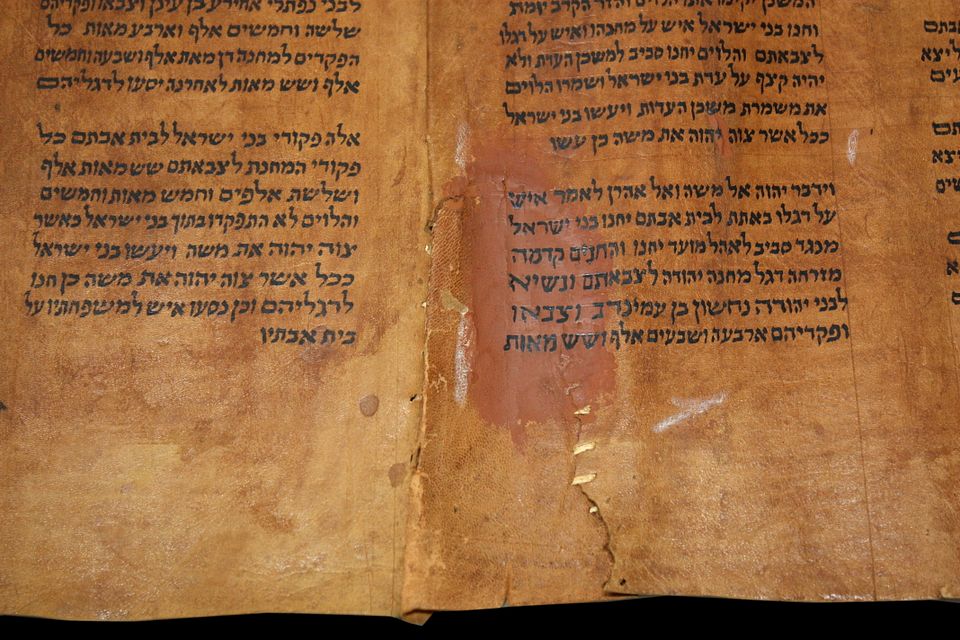 אבתם
יצא
אבתם
יצא
המשכן יקימו אתו הלוים והזר הקרב יומת
וחנו בני ישראל איש על מחנהו ואיש על דגלו
לצבאתם והלוים יחנו סביב למשכן העדת ולא
יהיה קצף על עדת בני ישראל ושמרו הלוים
את משמרת משכן העדות ויעשו בני ישראל
ככל אשר צוה יהוה את משה כן עשו
וידבר יהוה אל משה ואל אהרן לאמר איש
על דגלו באתת לבית אבתם יחנו בני ישראל
מנגד סביב לאהל מועד יחנו והחנים קדמה
מזרחה דגל מחנה יהודה לצבאתם ונשיא
לבני יהודה נחשון בן עמינדב וצבאו
ופקדיהם ארבעה ושבעים אלף ושש מאות
לבני נפתלי אחירע בן עינן וצבאו ופקדיהם
שלשה וחמשים אלף וארבע מאות כל
הפקדים למחנה דן מאת אלף ושבעה וחמשים
אלף ושש מאות לאחרנה יסעו לדגליהם
אלה פקודי בני ישראל לבית אבתם כל
פקודי המחנת לצבאתם שש מאות אלף
ושלשת אלפים וחמש מאות וחמשים
והלוים לא התפקדו בתוך בני ישראל כאשר
צוה יהוה את משה ויעשו בני ישראל
ככל אשר צוה יהוה את משה כן חנו
לדגליהם וכן נסעו איש למשפחתיו על
בית אבתיו